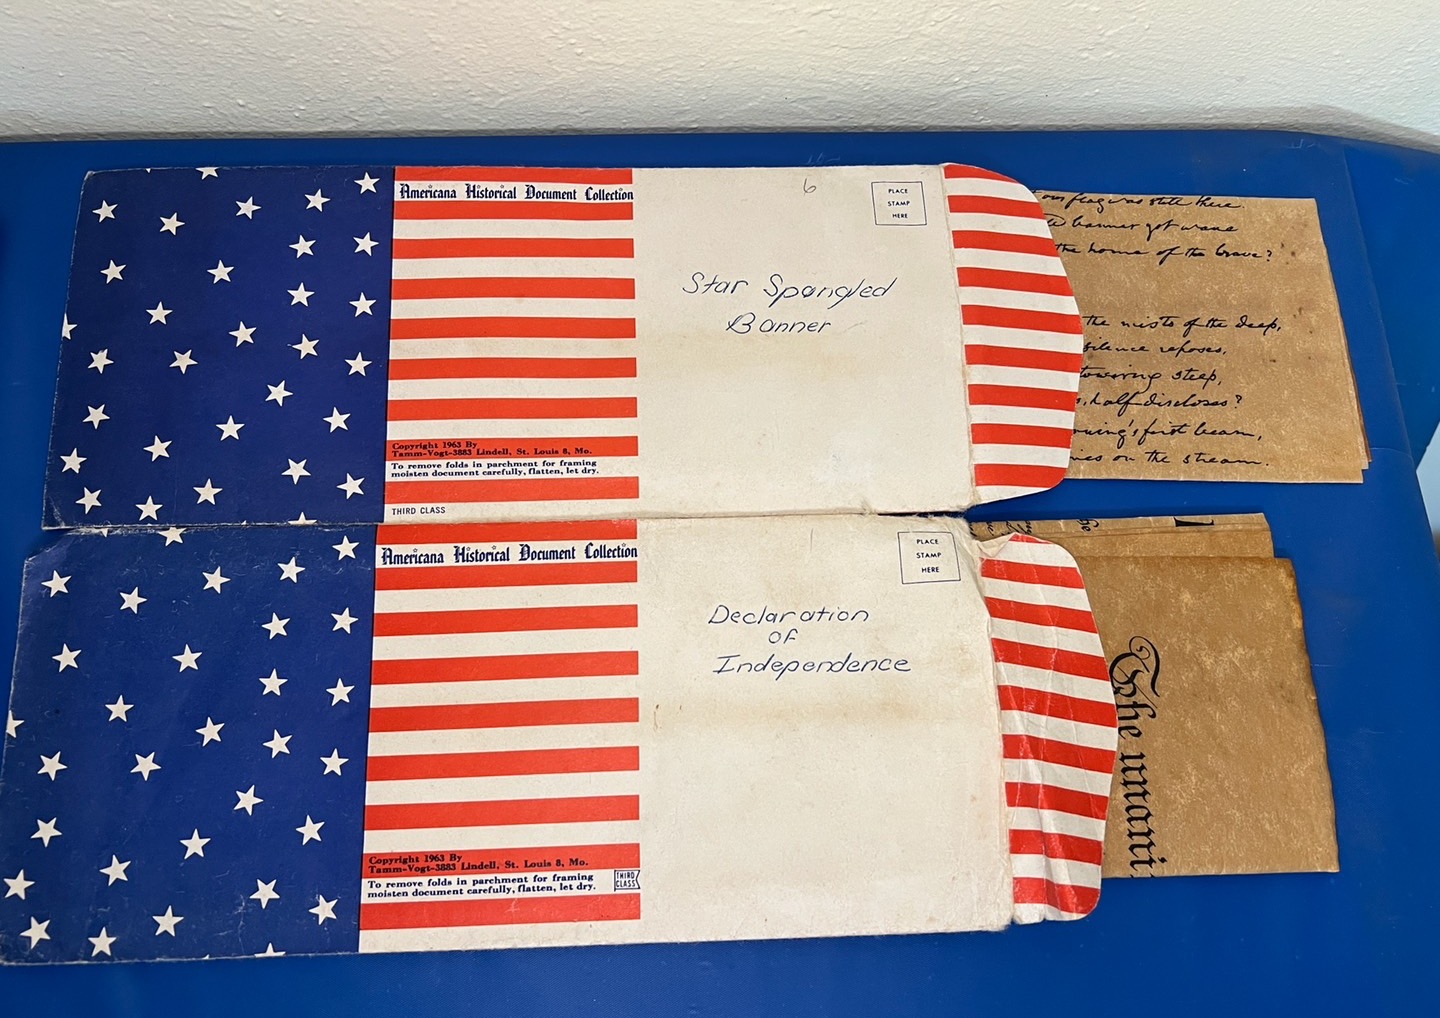 Americana Historical Document Collection
6
PLACE
STAMP
HERE
Star Spangled
Banner
Copyright 1963 By
Tamm-Vogt-3883 Lindell, St. Louis 8, Mo.
To remove folds in parchment for framing
moisten document carefully, flatten, let dry.
THIRD CLASS
our flag was still there.
banner yet wave
the home of the brave?
the mists of the deep,
silence reposes,
towering steep,
half discloses?
morning's first beam,
on the stream.
Americana Historical Document Collection
PLACE
STAMP
HERE
Declaration
of
Independence
Copyright 1963 By
Tamm-Vogt-3883 Lindell, St. Louis 8, Mo.
To remove folds in parchment for framing
moisten document carefully, flatten, let dry.
THIRD
CLASS
The unani